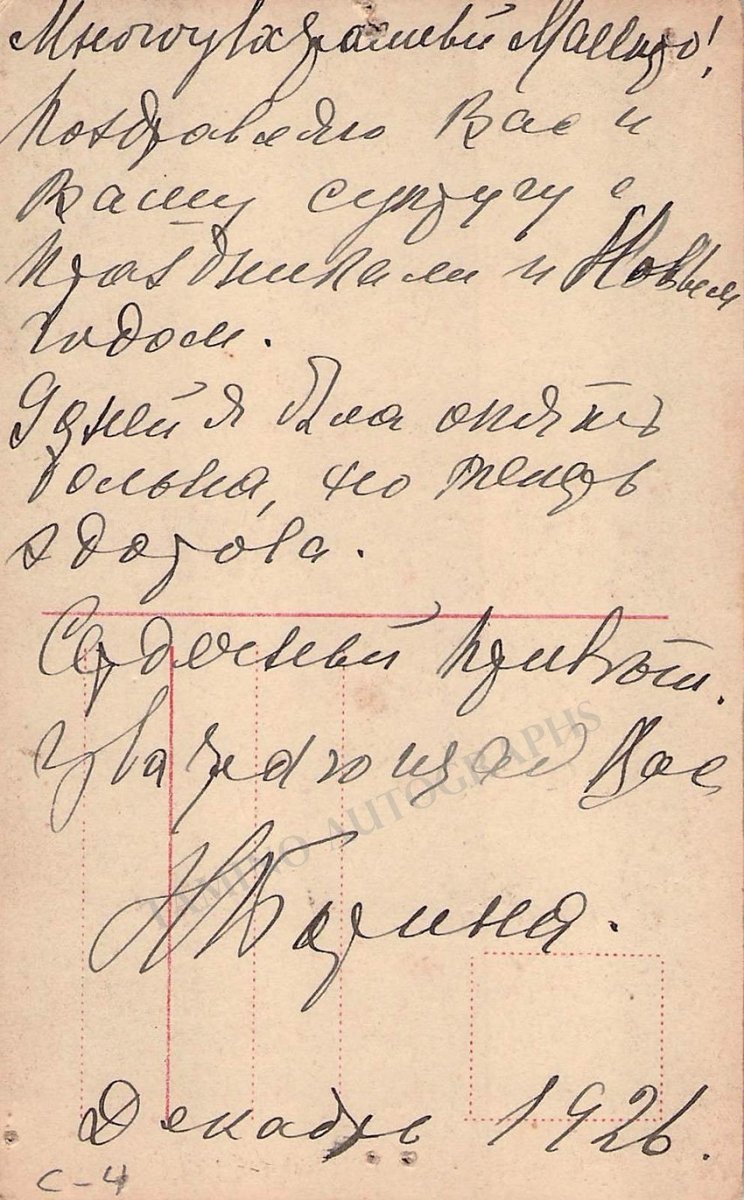 Многоуважаемый Маэстро!
Поздравляю Вас и
Вашу супругу с
праздниками и Новым
годом.
9 дней я была опять
больна, но теперь
здорова.
Сердечный привет.
Уважающая Вас
Н
Декабрь 1926.
C-4
TAMINO AUTOGRAPHS